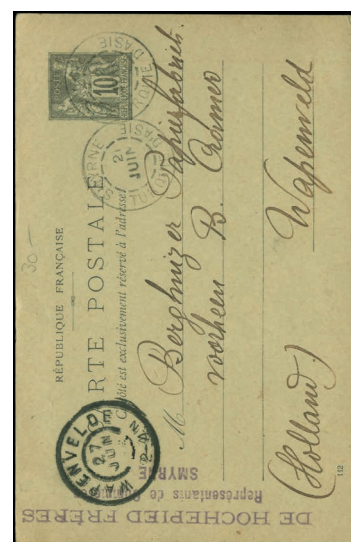 RÉPUBLIQUE FRANÇAISE
CARTE POSTALE
Ce côté est exclusivement réservé à l'adresse
POSTE
10
SMYRNE TURQUIE D'ASIE
2
JUIN
M Berghuizer Papierfabriek
voorheen B. Cramer
Wapenveld
(Holland)
WAPENVELDE
27
JUN
DE HOCHEPIED FRÈRES
Représentants de
SMYRNE
112
30 —